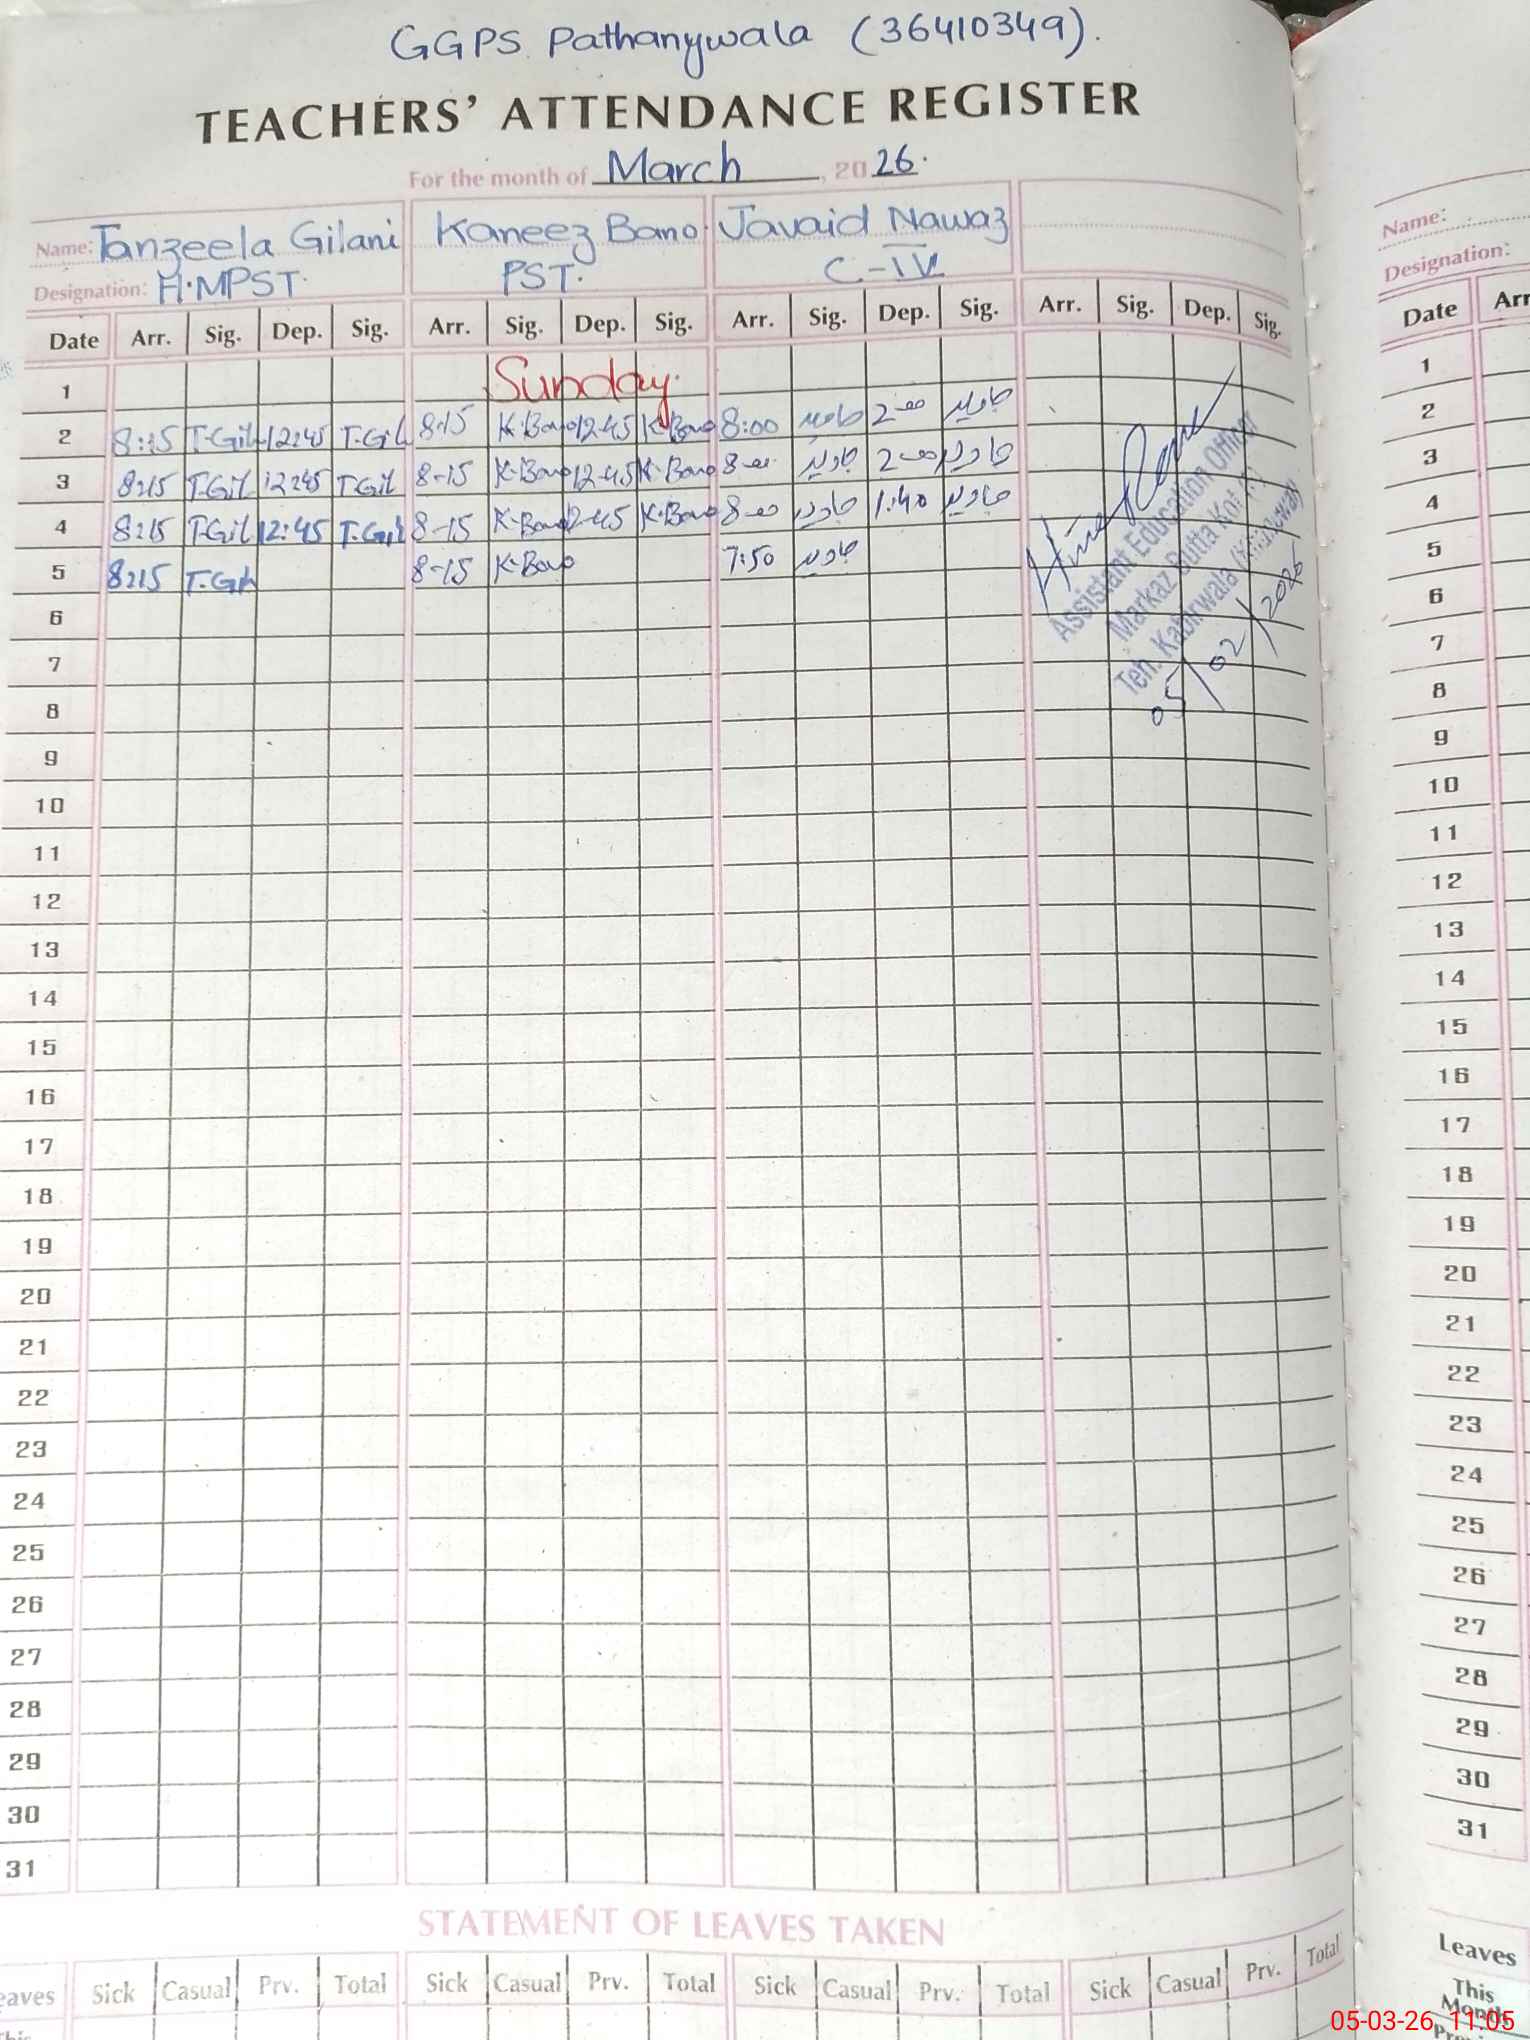 GGPS Pathanywala (36410349).
TEACHERS' ATTENDANCE REGISTER
For the month of March, 2026.
Name: Tanzeela Gilani Kaneez Bano. Javaid Nawaz
Designation: H.MPST. PST. C-IV
Date Arr. Sig. Dep. Sig. Arr. Sig. Dep. Sig. Arr. Sig. Dep. Sig. Arr. Sig. Dep. Sig.
1 Sunday.
2 8:15 T.Gil 12:45 T.Gil 8-15 K.Bano 12-45 K.Bano 8:00 جاوید 2-00 جاوید
3 8:15 T.Gil 12:45 T.Gil 8-15 K.Bano 12-45 K.Bano 8-00 جاوید 2-00 جاوید
4 8:15 T.Gil 12:45 T.Gil 8-15 K.Bano 12-45 K.Bano 8-00 جاوید 1:40 جاوید
5 8:15 T.Gil 8-15 K.Bano 7:50 جاوید
6
7
8
9
10
11
12
13
14
15
16
17
18
19
20
21
22
23
24
25
26
27
28
29
30
31
Assistant Education Officer
Markaz Butta Kot
Teh. Kabirwala
05/02/2026
STATEMENT OF LEAVES TAKEN
Sick Casual Prv. Total Sick Casual Prv. Total Sick Casual Prv. Total Sick Casual Prv. Total
Name:
Designation:
Date
1
2
3
4
5
6
7
8
9
10
11
12
13
14
15
16
17
18
19
20
21
22
23
24
25
26
27
28
29
30
31
Leaves
This
05-03-26, 11:05